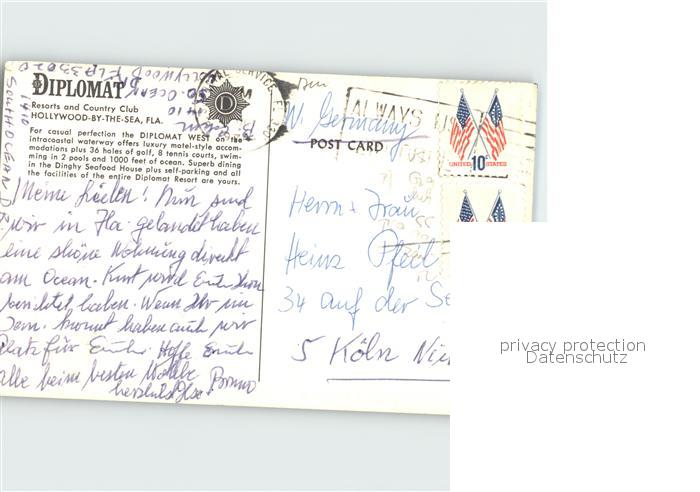 DIPLOMAT
Resorts and Country Club
HOLLYWOOD-BY-THE-SEA, FLA.
For casual perfection the DIPLOMAT WEST on the
intracoastal waterway offers luxury motel-style accom-
modations plus 36 holes of golf, 8 tennis courts, swim-
ming in 2 pools and 1000 feet of ocean. Superb dining
in the Dinghy Seafood House plus self-parking and all
the facilities of the entire Diplomat Resort are yours.
1410
SOUTH OCEAN DR.
HOLLYWOOD FLA 33020
SO. OCEAN DR
1410
D
Meine Lieben! Nun sind
wir in Fla. gelandet haben
eine schöne Wohnung direkt
am Ocean. Kurt wird Euch schon
berichtet haben. Wenn Ihr im
kommt haben auch wir
Platz für Euch. Hoffe Euch
alle beim besten Bruno
herzlichst Ilse
W. Germany
POST CARD
ALWAYS
UNITED 10c STATES
Herrn + Frau
Heinz Pfeil
34 auf der
5 Köln
privacy protection
Datenschutz